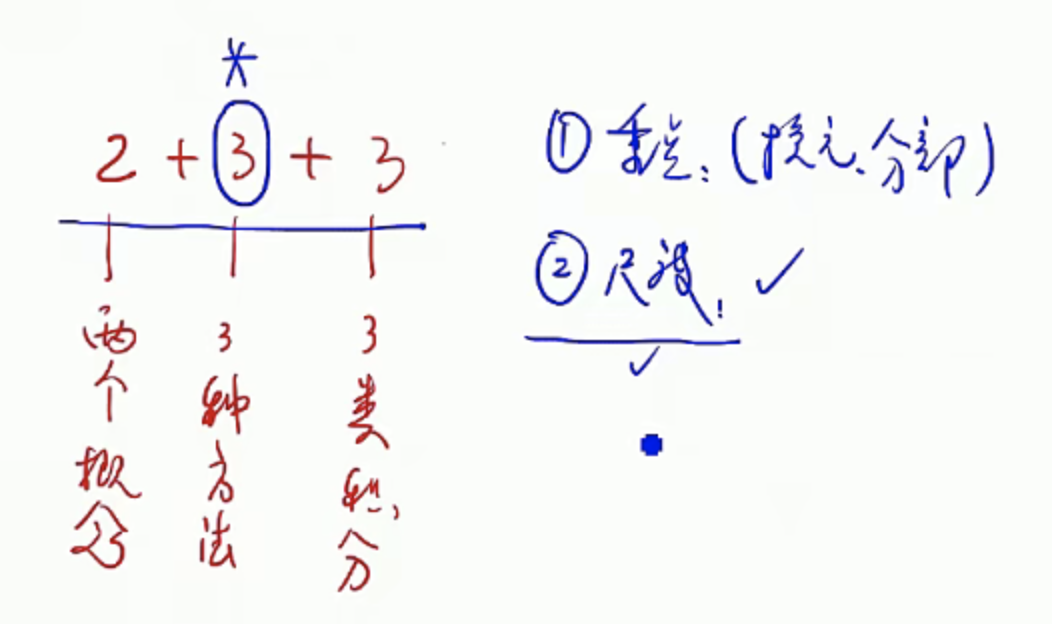 *
2 + 3 + 3
两个概念
3种方法
3类积分
① 重点:(换元、分部)
② 尺度:✓
✓